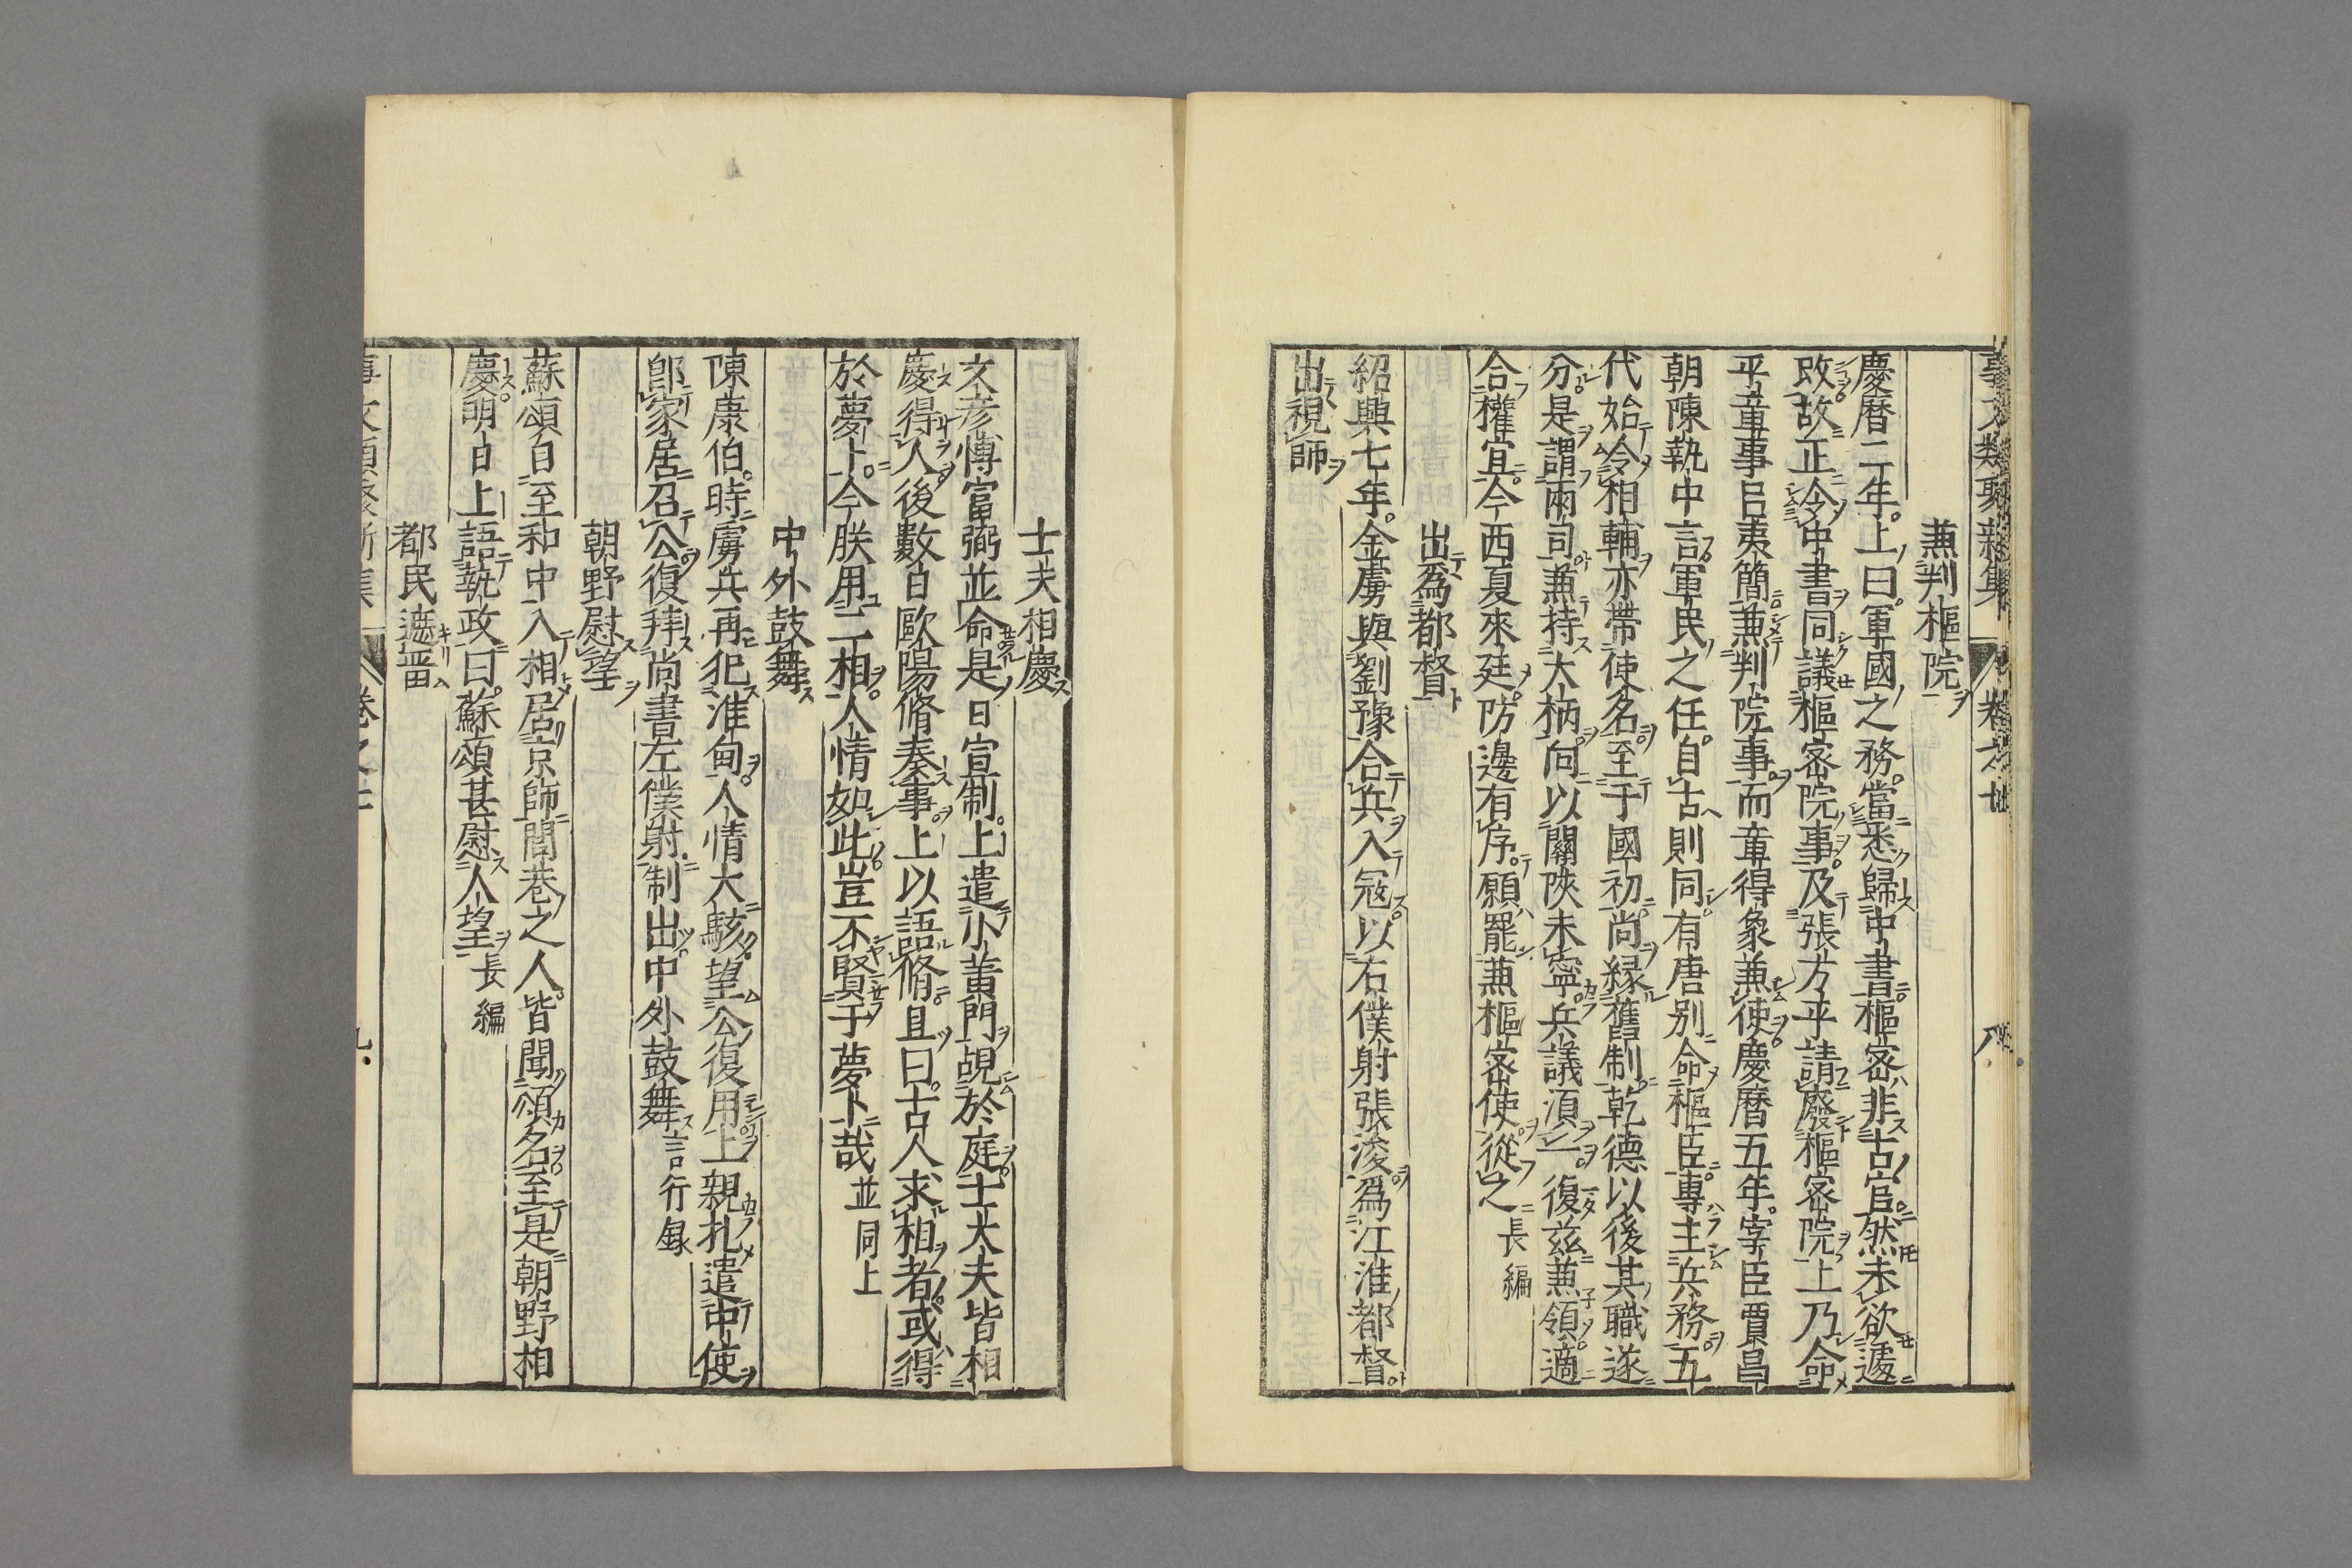 兼判樞院
慶暦二年上曰軍國之務當悉歸中書樞密非古官然未欲遽
改故正令中書同議樞密院事及張方平請廢樞密院上乃命
平章事呂夷簡兼判院事而章得象兼使慶暦五年宰臣賈昌
朝陳執中言軍民之任自古則同有唐别命樞臣專主兵務五
代始令相輔亦帶使名至于國初尚縁舊制乾德以後其職遂
分是謂兩司兼持大柄向以關陜未寧兵議湏一復兹兼領適
合權宜今西夏來廷防邊有序願罷兼樞密使從之 長編
出爲都督
紹興七年金虜與劉豫合兵入冦以右僕射張浚爲江淮都督
出視師
士夫相慶
文彦博富弼並命是日宣制上遣小黄門覘於庭士大夫皆相
慶得人後數日歐陽脩奏事上以語脩且曰古人求相者或得
於夢卜今朕用二相人情如此豈不賢于夢卜哉 並同上
中外鼓舞
陳康伯時虜兵再犯淮甸人情大駭望公復用上親札遣中使
卽家居召公復拜尚書左僕射制出中外鼓舞 言行録
朝野慰望
蘇頌自至和中入相居京師閭巷之人皆聞頌名至是朝野相
慶明日上語執政曰蘇頌甚慰人望 長編
都民遮畱